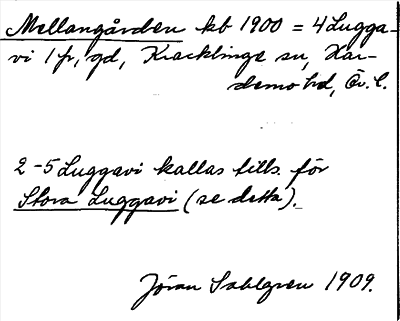 Mellangården kb 1900 = 4 Lugga-
vi 1 fr, gd, Kracklinge sn, Har-
demo hd, Ör. l.
2-5 Luggavi kallas tills. för
Stora Luggavi (se detta).
Jöran Sahlgren 1909.